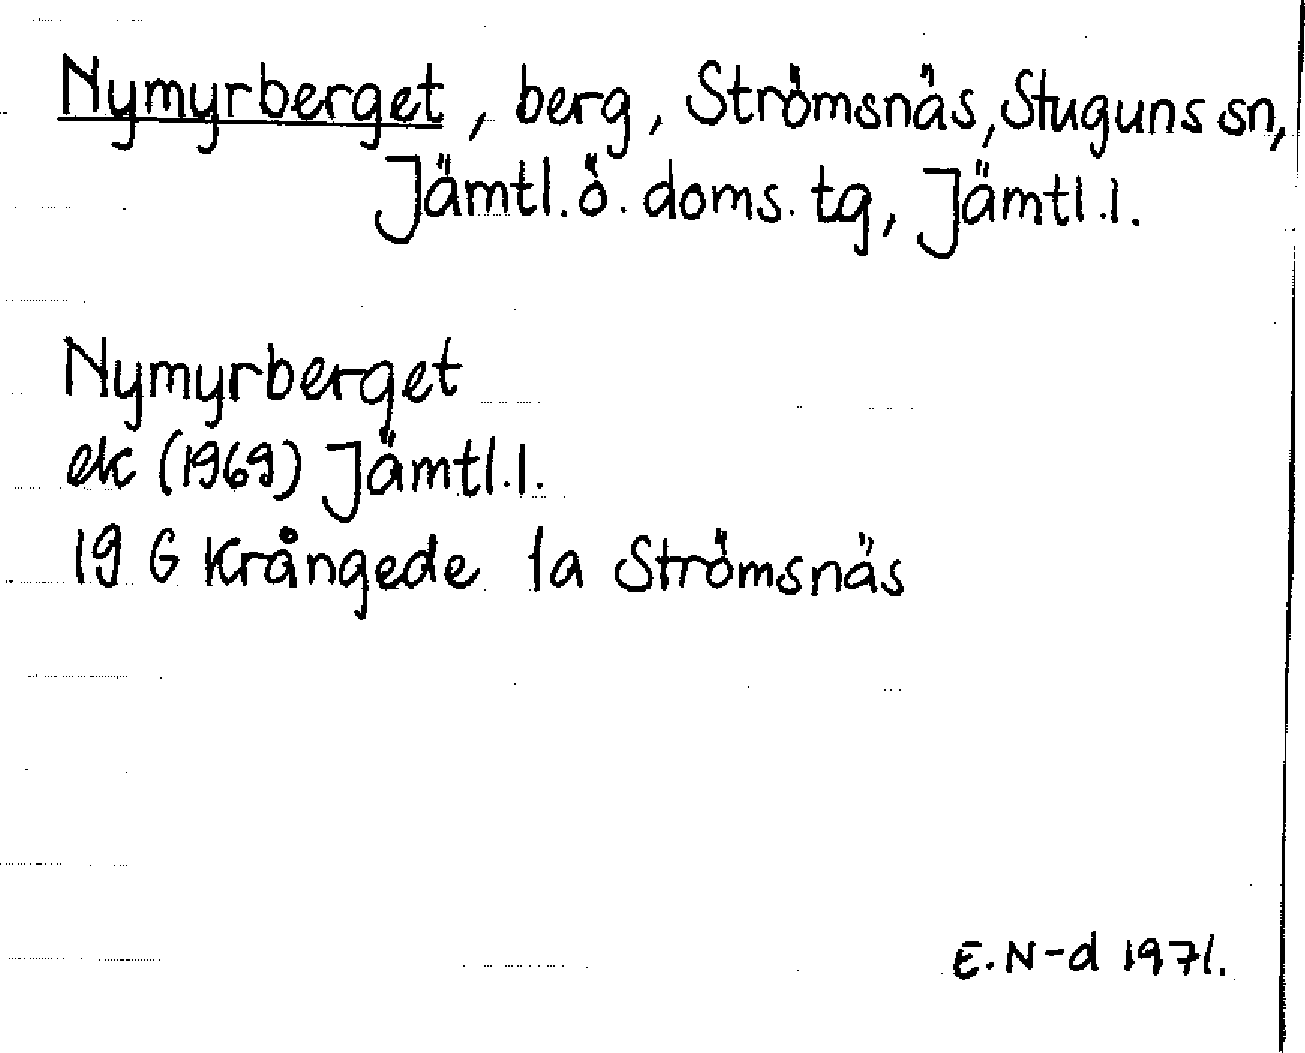 Nymyrberget, berg, Strömsnäs, Stuguns sn,
Jämtl. ö. doms. tg, Jämtl. l.
Nymyrberget
ek (1969) Jämtl. l.
19 G Krångede 1a Strömsnäs
E. N-d 1971.